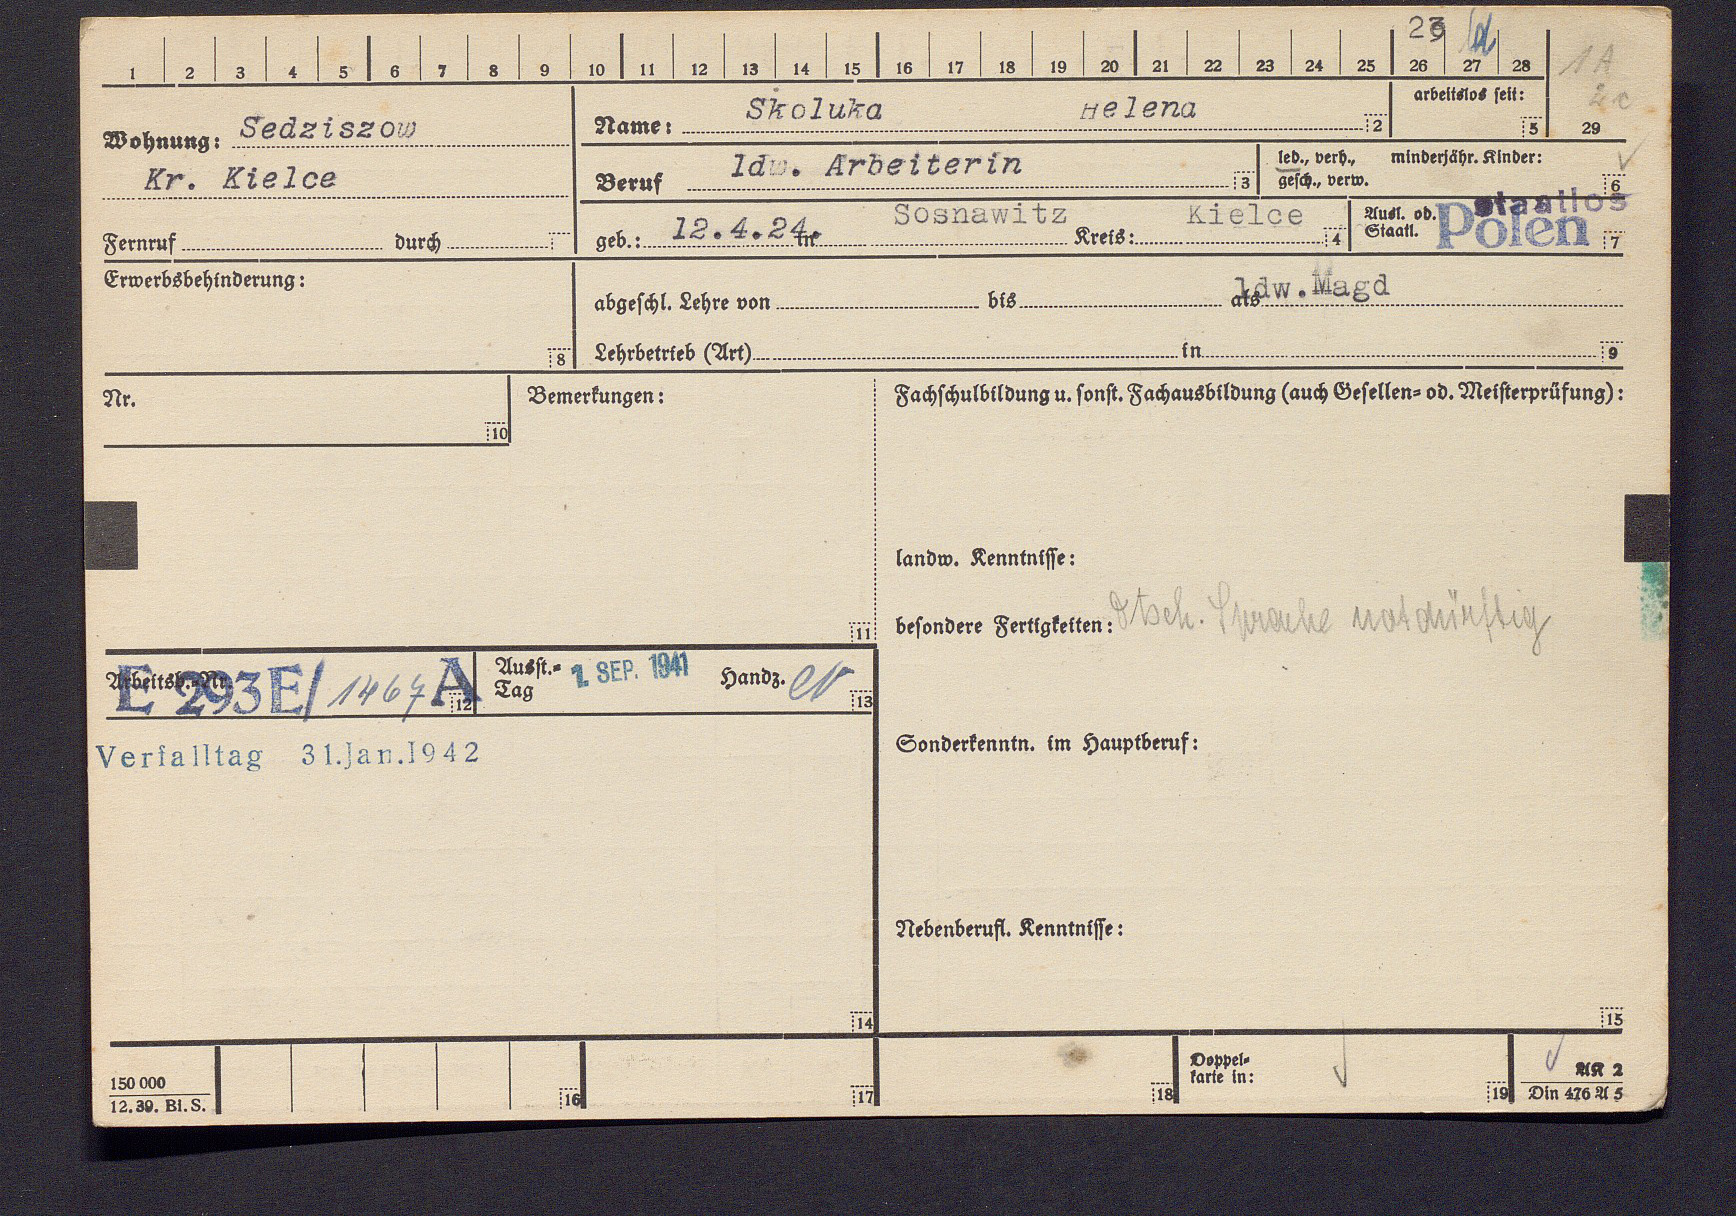 23
1 2 3 4 5 6 7 8 9 10 11 12 13 14 15 16 17 18 19 20 21 22 23 24 25 26 27 28
1A
29
Wohnung: Sedziszow
Kr. Kielce
Fernruf durch
Name: Skoluka Helena 2
arbeitslos seit: 5
Beruf ldw. Arbeiterin 3
led., verh., minderjähr. Kinder:
gesch., verw. 6
geb.: 12.4.24. in Sosnawitz Kreis: Kielce 4
Ausl. od. staatlos
Staatl. Polen 7
Erwerbsbehinderung:
8
abgeschl. Lehre von bis als ldw. Magd
Lehrbetrieb (Art) in 9
Nr.
10
Bemerkungen:
11
Fachschulbildung u. sonst. Fachausbildung (auch Gesellen= od. Meisterprüfung):
landw. Kenntnisse:
besondere Fertigkeiten: Dtsch. Sprache notdürftig
Arbeitsb.-Nr. E 293E/1467 A 12
Ausst.=
Tag 1. SEP. 1941 Handz. 13
Verfalltag 31.Jan.1942
14
Sonderkenntn. im Hauptberuf:
Nebenberufl. Kenntnisse:
15
150 000
12. 39. Bl. S.
16
17
18
Doppel=
karte in:
19
AK 2
Din 476 A 5